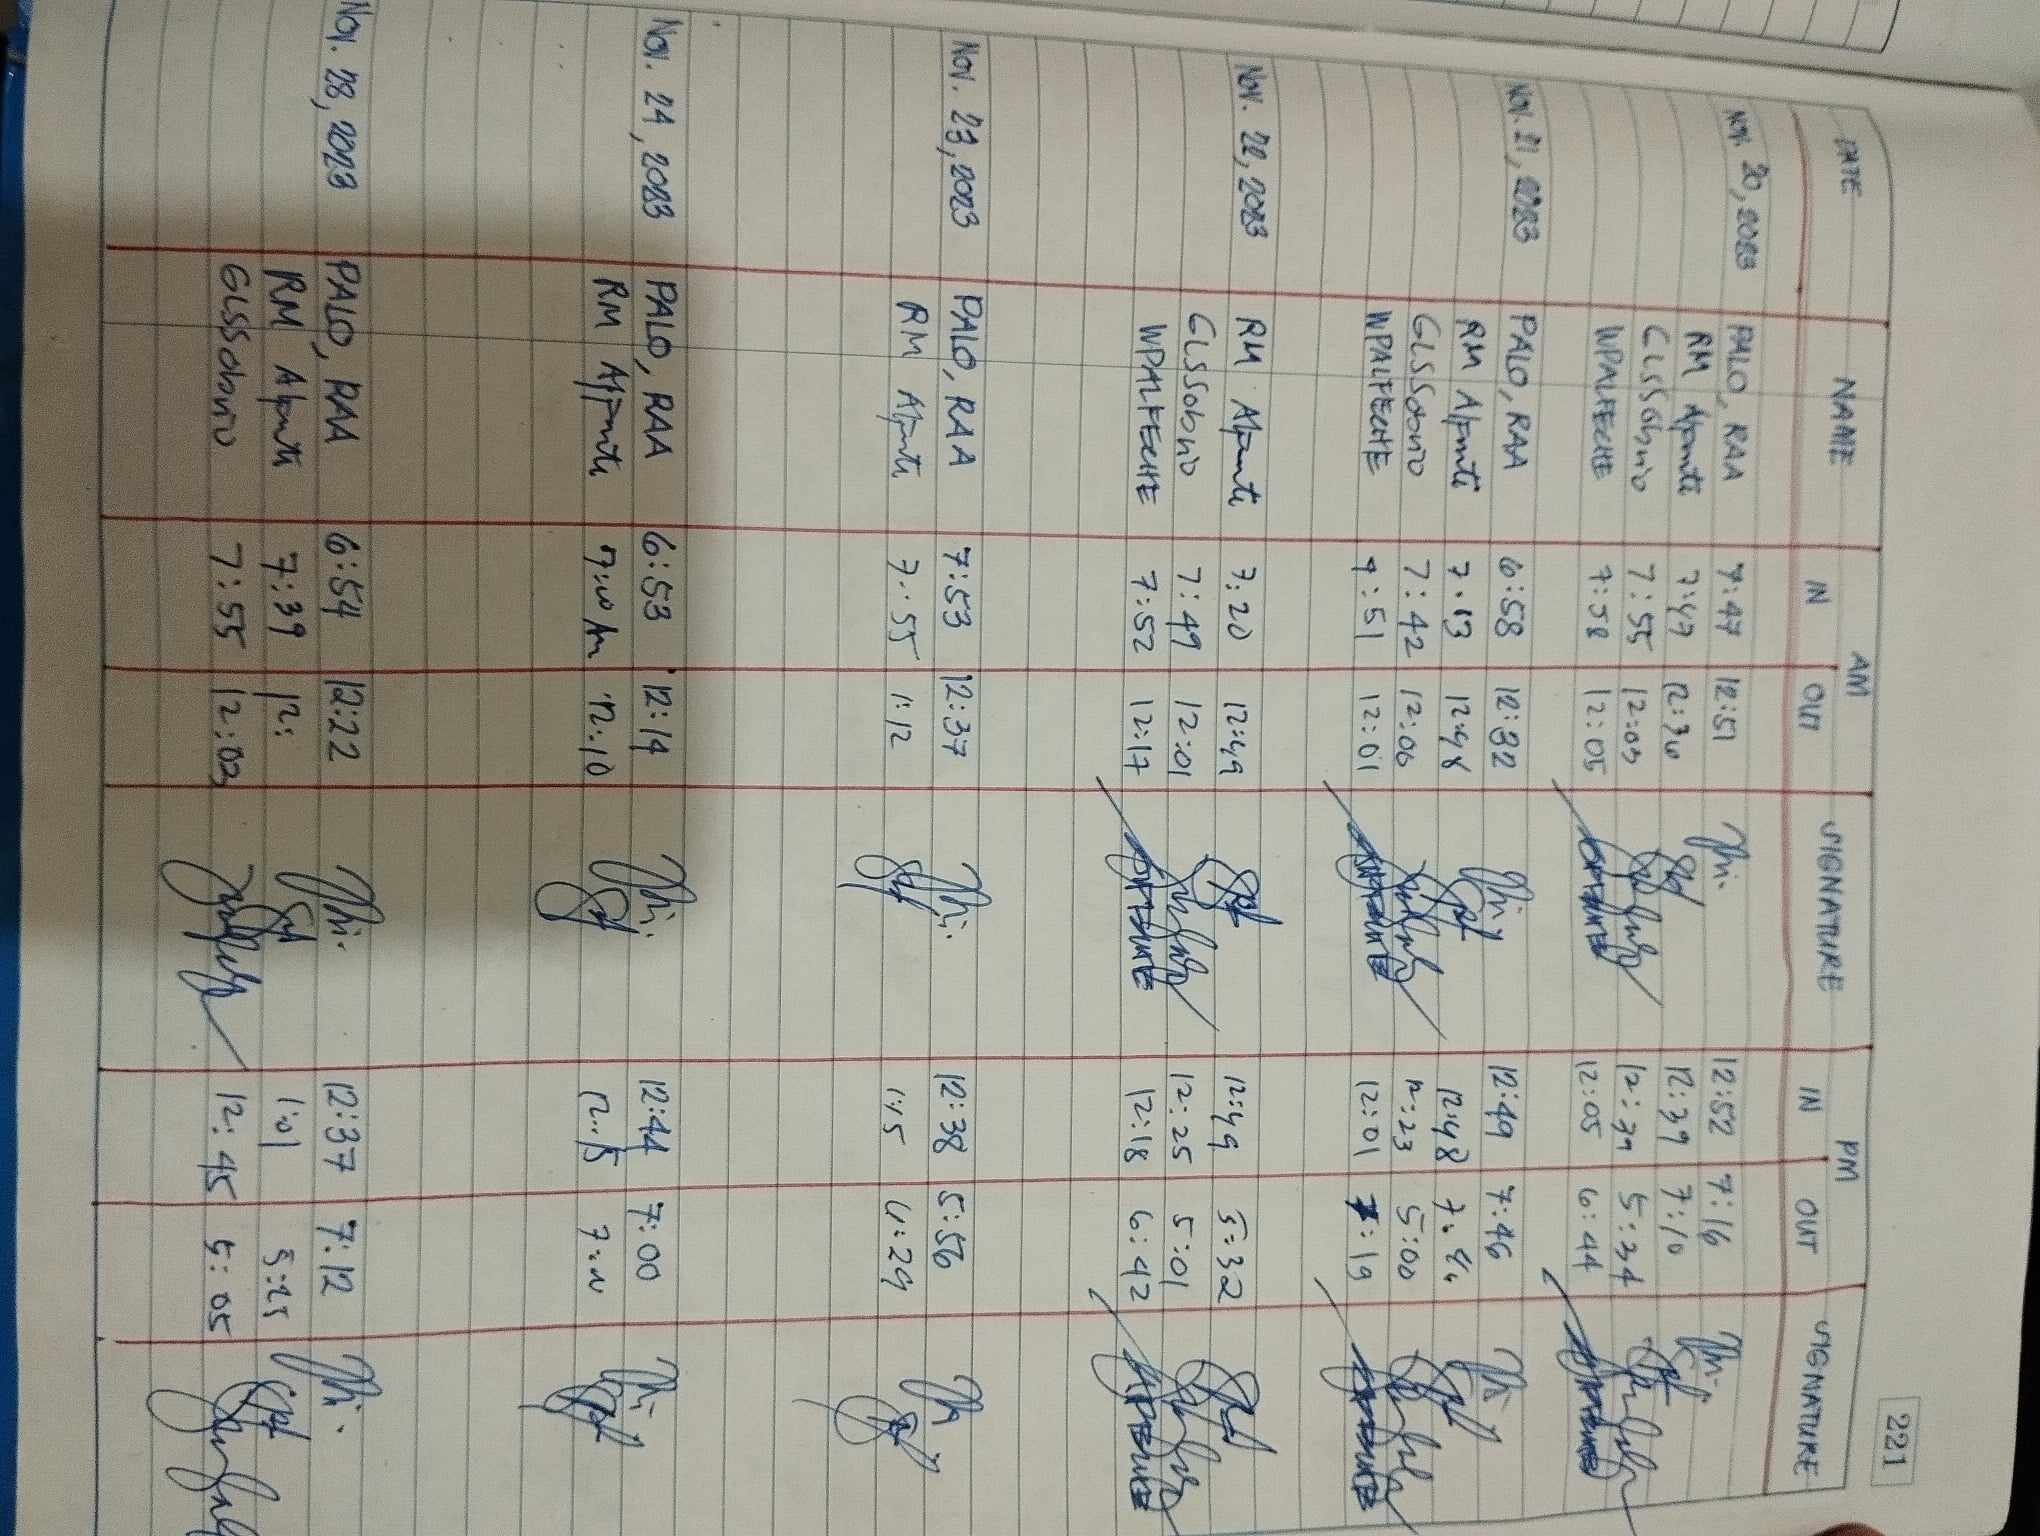 221
DATE NAME AM SIGNATURE PM SIGNATURE
IN OUT IN OUT
Nov. 20, 2023 PALO, RAA 7:47 12:51 12:52 7:16
RM 7:47 12:36 12:39 7:10
GLSSobrio 7:55 12:03 12:39 5:34
WPALFECHE 7:58 12:05 12:05 6:44
Nov. 21, 2023 PALO, RAA 6:58 12:32 12:49 7:46
RM 7:13 12:48 12:48
GLSSobrio 7:42 12:06 12:23 5:00
WPALFECHE 7:51 12:01 12:01 7:19
Nov. 22, 2023 RM 7:20 12:49 12:49 5:32
GLSSobrio 7:49 12:01 12:25 5:01
WPALFECHE 7:52 12:17 12:18 6:42
Nov. 23, 2023 PALO, RAA 7:53 12:37 12:38 5:56
RM 7:55 1:12 1:15
Nov. 24, 2023 PALO, RAA 6:53 12:14 12:44 7:00
RM 12:10 12:15
Nov. 28, 2023 PALO, RAA 6:54 12:22 12:37 7:12
RM 7:39 12: 1:01 5:25
GLSSobrio 7:55 12:03 12:45 5:05